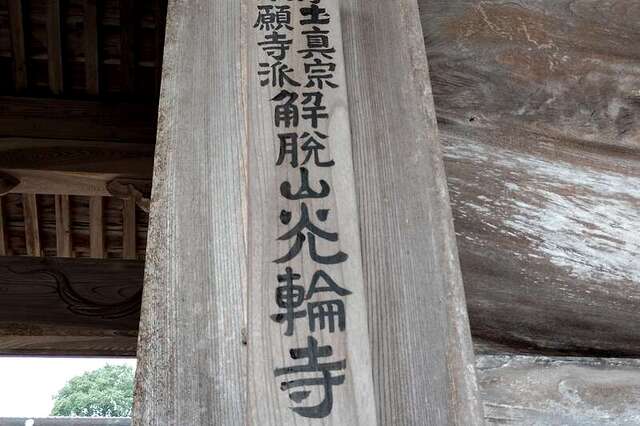 土真宗
願寺派
解脱山灮輪寺